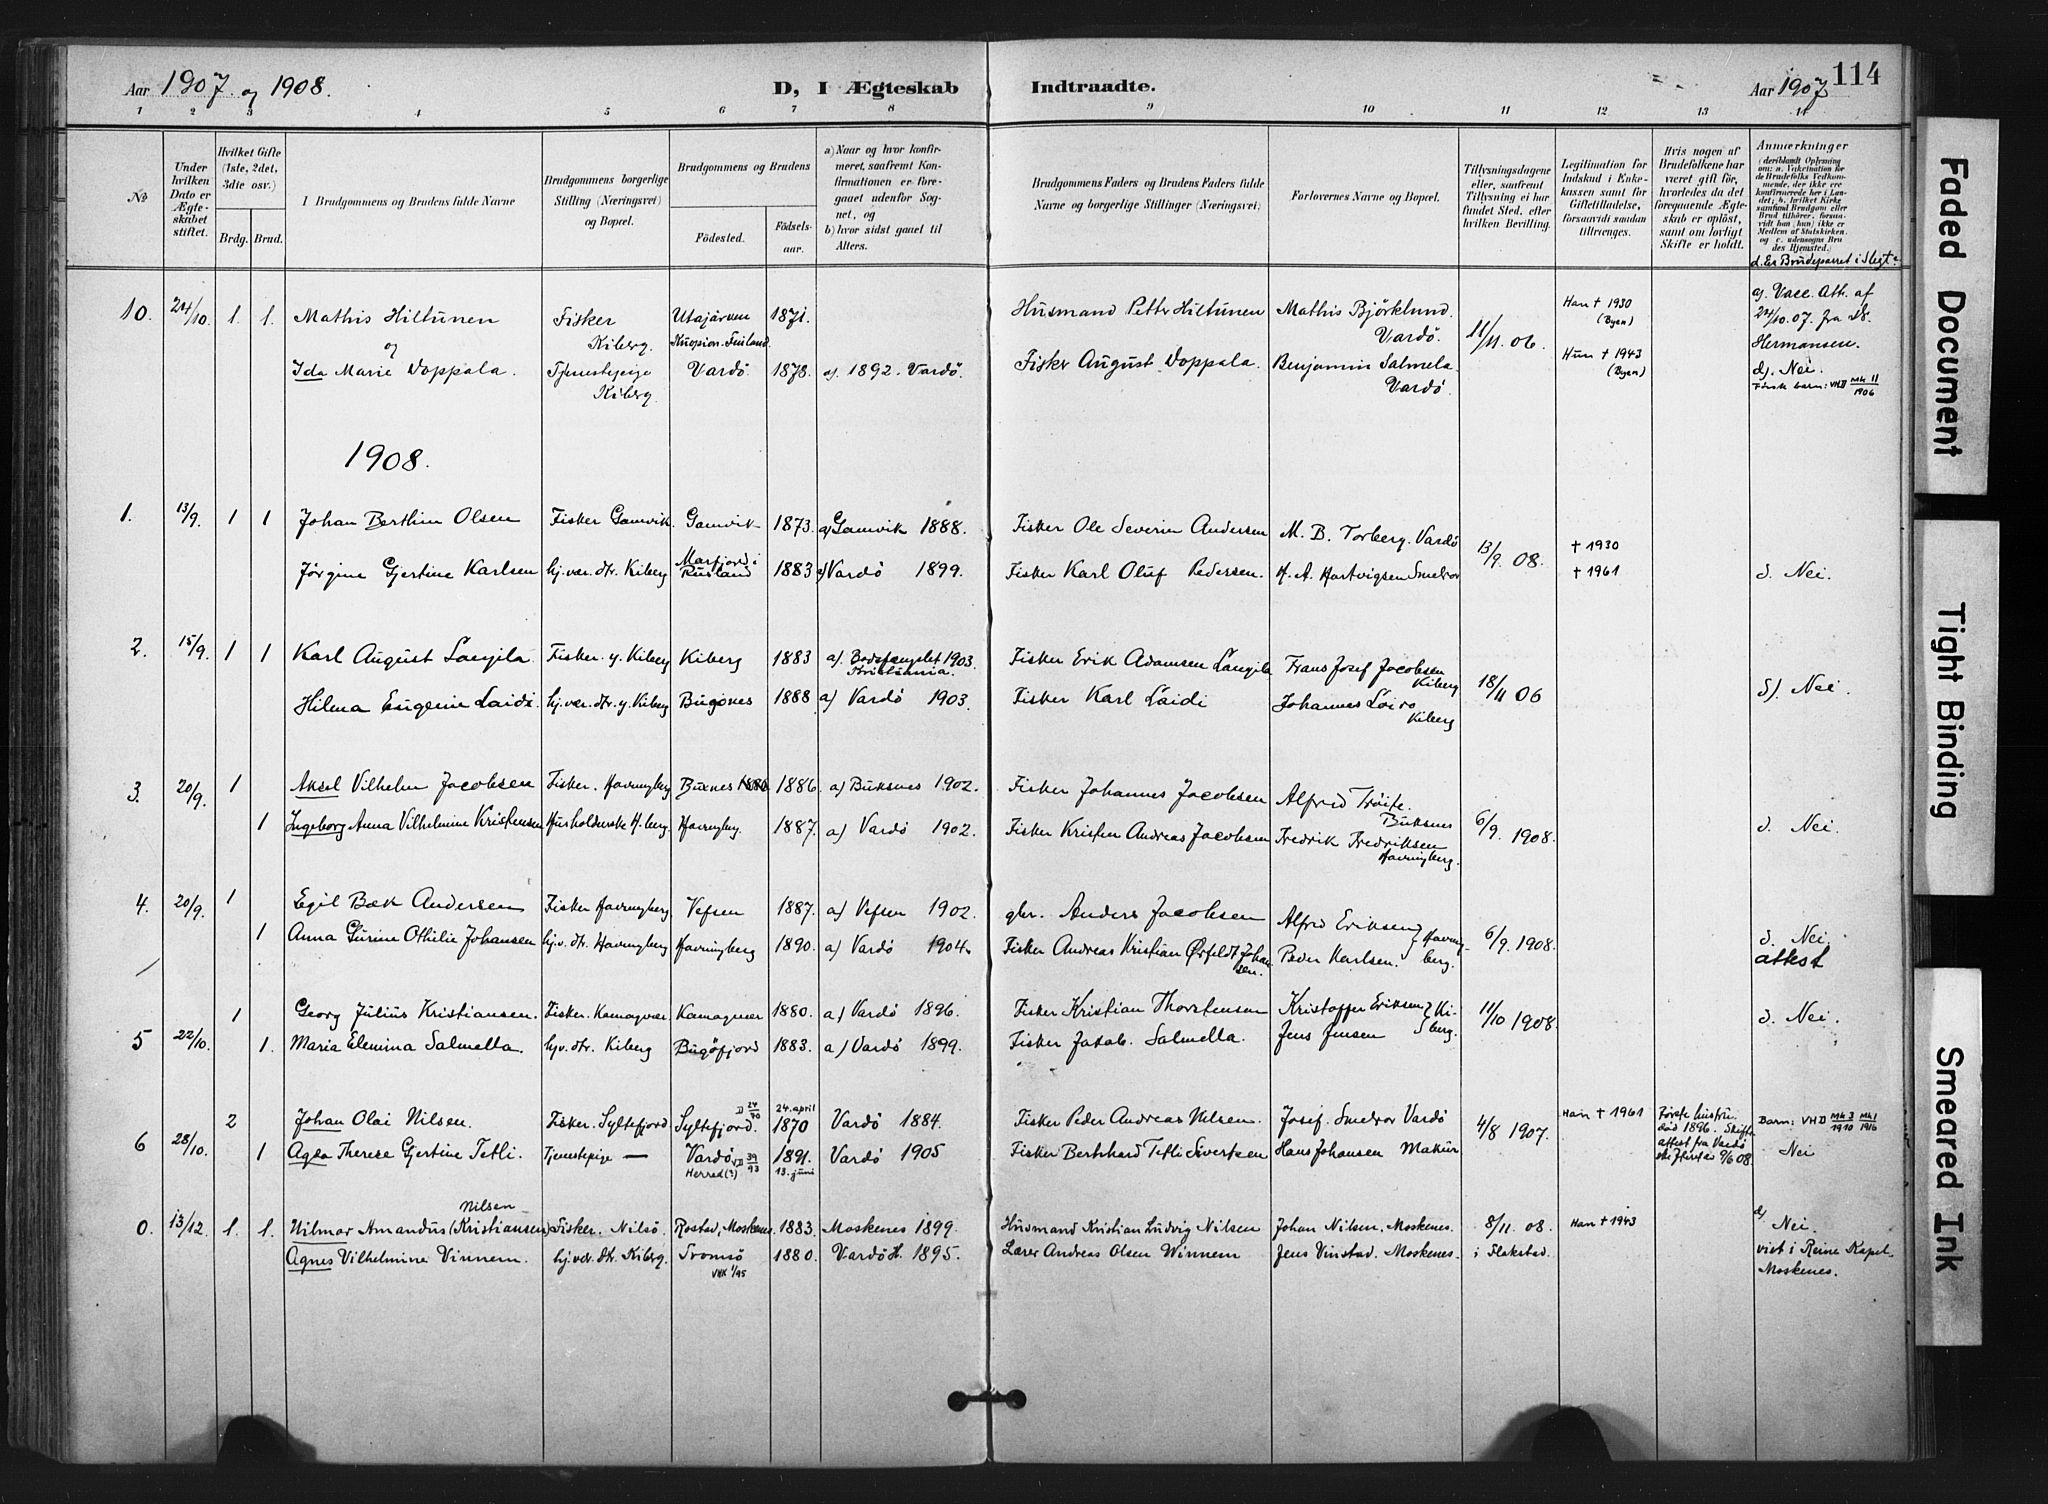 Aar 1907 og 1908.
D, I Ægteskab Indtraadte.
Aar 1907
114
1 2 3 4 5 6 7 8 9 10 11 12 13 14
No
Under hvilken Dato er Ægteskabet stiftet.
Hvilket Gifte (1ste, 2det, 3die osv.)
Brdg. Brud.
I Brudgommens og Brudens fulde Navne
Brudgommens borgerlige Stilling (Næringsvei) og Bopæl.
Brudgommens og Brudens
Fødested.
Fødselsaar.
a) Naar og hvor konfirmeret, saafremt Konfirmationen er foregaaet udenfor Sognet, og
b) hvor sidst gaaet til Alters.
Brudgommens Faders og Brudens Faders fulde Navne og borgerlige Stillinger (Næringsvei)
Forlovernes Navne og Bopæl.
Tillysningsdagene eller, saafremt Tillysning ei har fundet Sted, efter hvilken Bevilling.
Legitimation for Indskud i Enkekassen samt for Giftetilladelse, forsaavidt saadan tiltrænges.
Hvis nogen af Brudefolkene har været gift før, hvorledes da det foregaaende Ægteskab er opløst, samt om lovligt Skifte er holdt.
Anmærkninger
(deriblandt Oplysning om: a. Vakcination for de Brudefolks Vedkommende, der ikke ere konfirmerede her i Landet; b. hvilket Kirkesamfund Brudgom eller Brud tilhører, forsaavidt han (hun) ikke er Medlem af Statskirken, og c. udensogns Brudes Hjemsted.)
d. Er Brudeparret i Slegt?
10. 24/10. 1. 1. Mathis Hiltunen Fisker Kiberg. Utajärven Kuopion. Finland. 1871. Husmand Petter Hiltunen Mathis Björklund Vardö. 11/11. 06. Han † 1930 (Byen) a). Vacc. Att. af 24/10. 07. fra Dr. Hermansen.
og
Ida Marie Doppala. Tjenestepige Kiberg. Vardö 1878. a). 1892. Vardö. Fisker August Doppala. Benjamin Salmela Vardö. Hun † 1943 (Byen) d). Nei.
1906
1908.
1. 13/9. 1 1 Johan Berthin Olsen Fisker Gamvik. Gamvik 1873. a) Gamvik 1888. Fisker Ole Severin Andersen M. B. Torberg. Vardö 13/9. 08. † 1930
Jörgine Gjertine Karlsen hj. vær. dtr. Kiberg Rusland 1883 a) Vardö 1899. Fisker Karl Oluf Pedersen. H. A. Hartvigsen Smelror † 1961 d. Nei.
2. 15/9. 1 1 Karl August Langila. Fisker. y. Kiberg Kiberg 1883 a). Bodsfængslet 1903. Kristiania. Fisker Erik Adamsen Langila Frans Josef Jacobsen Kiberg 18/11 06
Hilma Eugenie Laidi. hj. vær. dtr. y. Kiberg Bugönes 1888 a) Vardö 1903. Fisker Karl Laidi Johannes Loiro Kiberg d). Nei.
3. 20/9. 1 Aksel Vilhelm Jacobsen Fisker. Havningberg Buxnes 1886. a) Buksnes 1902. Fisker Johannes Jacobsen Alfred Tröite. Buksnes 6/9. 1908.
1 Ingeborg Anna Vilhelmine Kristensen Husholderske H.berg. Havningbg. 1887. a) Vardö 1902. Fisker Kristen Andreas Jacobsen Fredrik Fredriksen Havningberg. d. Nei.
4. 20/9. 1 Egil Bæk Andersen Fisker Havningberg Vefsen 1887. a) Vefsen 1902. gbr. Anders Jacobsen Alfred Eriksen Havningberg. 6/9. 1908.
1 Anna Gurine Othilie Johansen hj. v. dtr. Havningberg Havningberg 1890. a) Vardö 1904. Fisker Andreas Kristian Ørfeldt Johansen. Peder Karlsen. d. Nei.
attest
5 22/10. 1 Georg Julius Kristiansen. Fisker. Kamagvær Kamagvær 1880. a) Vardö 1896. Fisker Kristian Thorstensen Kristoffer Eriksen Kiberg. 11/10 1908. d. Nei.
1. Maria Elenina Salmella. hj v. dtr. Kiberg Bugöfjord 1883. a) Vardö 1899. Fisker Jakob. Salmella. Jens Jensen
6 28/10. 2 Johan Olai Nilsen. Fisker. Syltefjord Syltefjord. D 24/70 24. april 1870 Vardö 1884. Fisker Peder Andreas Nilsen. Josef. Smelror Vardö 4/8 1907. Han † 1961 Første hustru død 1896. Skifteattest fra Vardö 9/6 08. Barn: VHD Mk 3 1910 Mk 1 1916
1 Agda Therese Gjertine Tetli. Tjenestepige — Vardö VD 39/93 Herred (?) 1891. 13. juni Vardö 1905 Fisker Bernhard Tetli Sivertsen Hans Johansen Makur Nei
0. 13/12. 1. 1. Hilmar Amandus (Kristiansen) Nilsen Fisker. Nilsö. Rostad, Moskenes. 1883. Moskenes 1899. Husmand Kristian Ludvig Nilsen Johan Nilsen. Moskenes. 8/11. 08. Han † 1943 d) Nei.
Agnes Vilhelmine Vinnem. hj. vær. dtr. Kiberg. Tromsö VHK 1/95 1880. Vardö H. 1895. Lærer Andreas Olsen Winnem Jens Vinstad. Moskenes. i Flakstad. viet i Reine Kapel. Moskenes.
Faded Document
Tight Binding
Smeared Ink